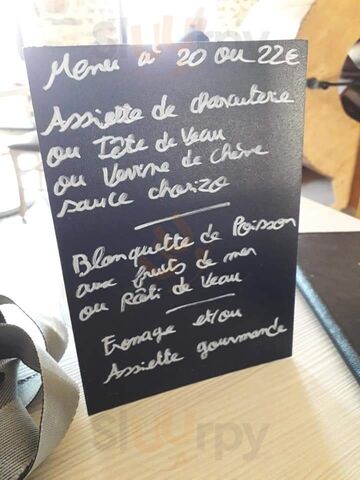 Sluurpy
Menu à 20 ou 22€
Assiette de charcuterie
ou Tête de Veau
ou Verrine de Chèvre
sauce chorizo
Blanquette de Poisson
aux fruits de mer
ou Rôti de Veau
Fromage et/ou
Assiette gourmande
Sluurpy